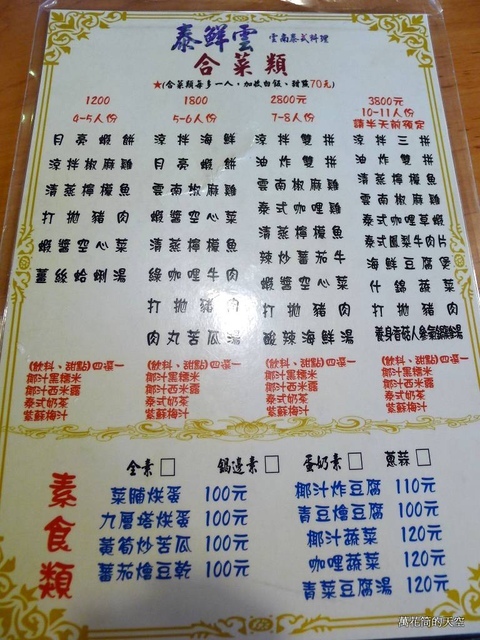 泰鮮雲 雲南泰式料理
合菜類
★(合菜類每多一人，加收白飯、甜點70元)
1200
4-5人份
月亮蝦餅
涼拌椒麻雞
清蒸檸檬魚
打拋豬肉
蝦醬空心菜
薑絲蛤蜊湯
(飲料、甜點)四選一
椰汁黑糯米
椰汁西米露
泰式奶茶
紫蘇梅汁
1800
5-6人份
涼拌海鮮
月亮蝦餅
雲南椒麻雞
蝦醬空心菜
清蒸檸檬魚
綠咖哩牛肉
打拋豬肉
肉丸苦瓜湯
(飲料、甜點)四選一
椰汁黑糯米
椰汁西米露
泰式奶茶
紫蘇梅汁
2800元
7-8人份
涼拌雙拼
油炸雙拼
雲南椒麻雞
泰式咖哩雞
清蒸檸檬魚
辣炒蕃茄牛
蝦醬空心菜
打拋豬肉
酸辣海鮮湯
(飲料、甜點)四選一
椰汁黑糯米
椰汁西米露
泰式奶茶
紫蘇梅汁
3800元
10-11人份
請半天前預定
涼拌三拼
油炸雙拼
清蒸檸檬魚
雲南椒麻雞
泰式咖哩草蝦
泰式鳳梨牛肉片
海鮮豆腐煲
什錦蔬菜
打拋豬肉
(飲料、甜點)四選一
椰汁黑糯米
椰汁西米露
泰式奶茶
紫蘇梅汁
素食類
全素□ 鍋邊素□ 蛋奶素□ 蔥蒜□
菜脯烘蛋 100元
九層塔烘蛋 100元
黃筍炒苦瓜 100元
蕃茄燴豆乾 100元
椰汁炸豆腐 110元
青豆燴豆腐 100元
椰汁蔬菜 120元
咖哩蔬菜 120元
青菜豆腐湯 120元
萬花筒的天空